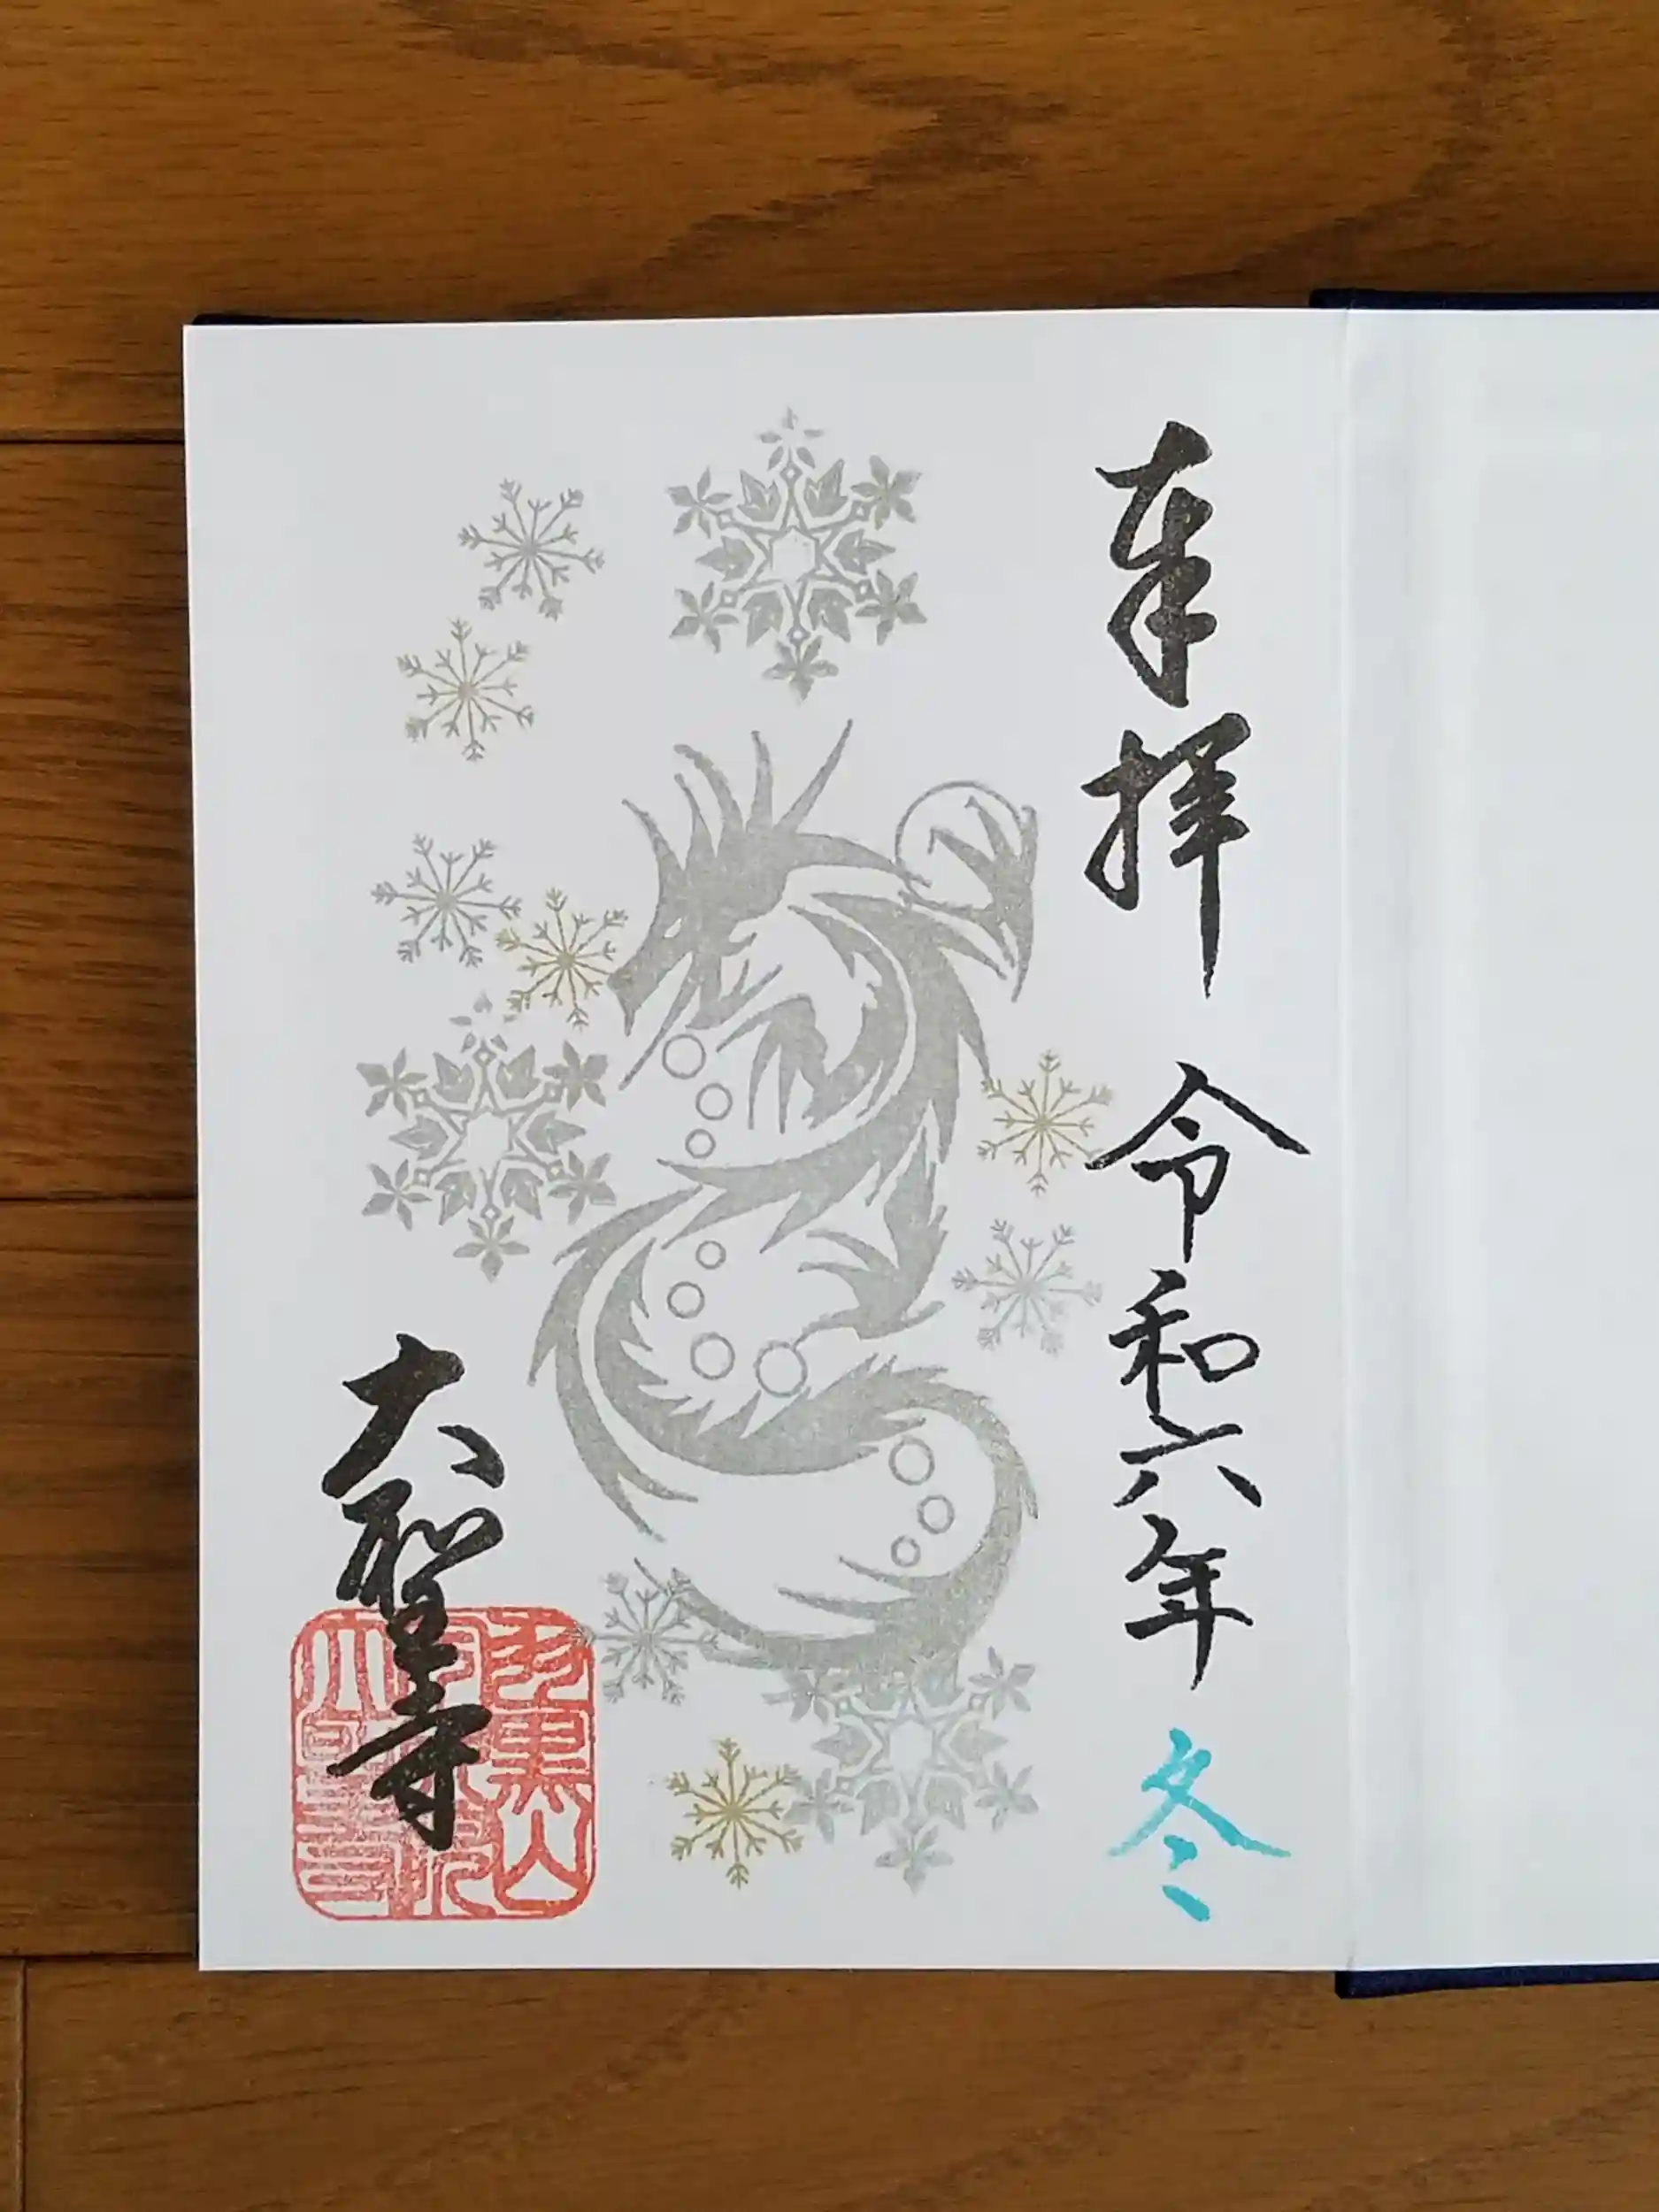 奉拝 令和六年 冬
大聖寺